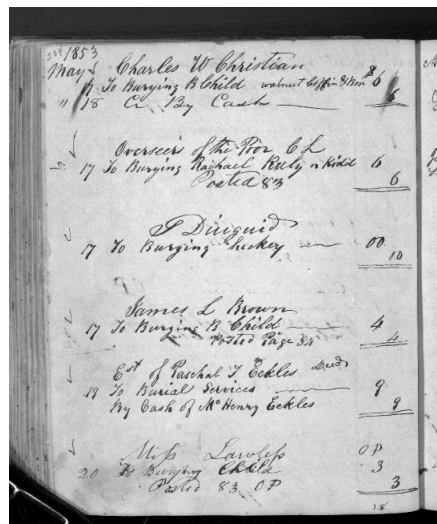 1853
May Charles W Christian
17 To Burying B Child walnut Coffin & Box $6
" 18 Cr By Cash 6
Overseers of the Poor C L
17 To Burying Rachael Kidd 6
Posted 83 6
Diuguid
17 To Burying 00
10
James L Brown
17 To Burying B Child 4
Posted Page 34 4
Est of Paschal T Eckles Decd
18 To Burial Services 9
By Cash of McHenry Eckles 9
Miss Lawless O P
20 To Burying Child 3
Posted 83 O P 3